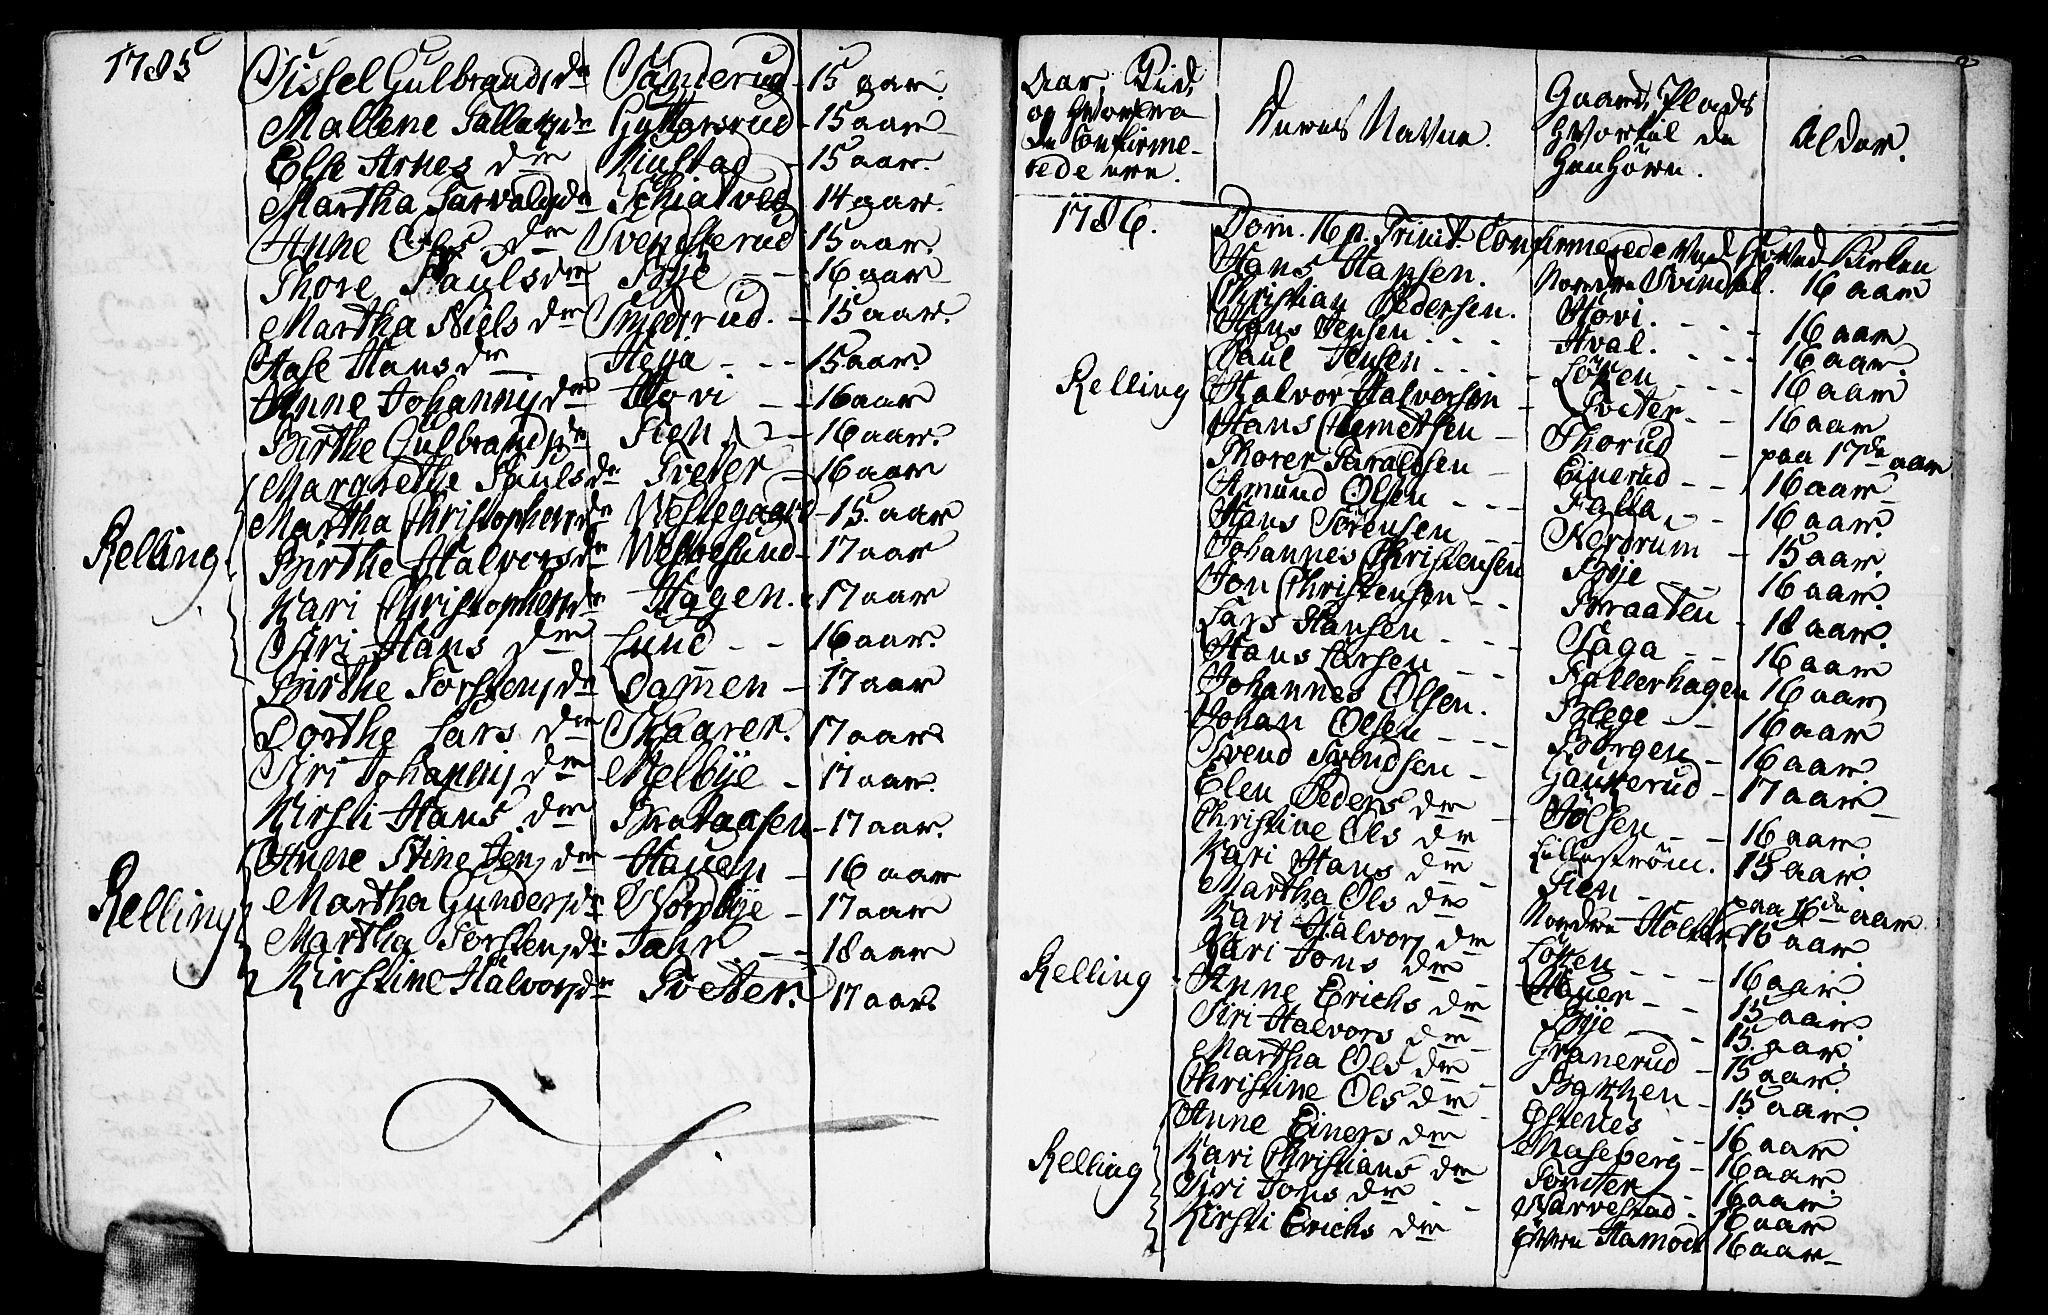 1785
Sissel Gulbrands dr Sanderud 15 aar.
Mallene Tallefs dr Guttersrud 15 aar
Else Arnes dr Kiustad 15 aar.
Martha Tarvalds dr Schiatved 14 aar.
Anne Ols dr Svendserud 15 aar.
Thore Pauls dr Bye 16 aar
Martha Niels dr Smedsrud. 15 aar.
Aase Hans dr Heya 15 aar.
Anne Johannis dr Hovi 16 aar
Birthe Gulbrands dr Tien 16 aar.
Margrethe Pauls dr Tveter 16 aar
Martha Christophers dr Westegaard 15. aar
Relling Birthe Halvors dr 17 aar
Kari Christophers dr Hagen. 17 aar
Siri Hans dr Lund 16 aar.
Birthe Torstens dr Dammen 17 aar
Dorthe Lars dr Skaarer. 17 aar
Siri Johannis dr Melbye 17 aar.
Kirsti Hans dr Braaraasen 17 aar.
Anne Stine Jens dr Hauen 16 aar
Relling Martha Gunders dr Nordbye 17 aar
Martha Torstens dr Tahr. 18 aar
Kirstine Halvors dr Tveter. 17 aar
Aar, Tid,
og hvorlra
de Confirme-
rede ere.
Deres Navne.
Gaard, Plads
hvortil de
henhöre.
Alder.
1786. Dom. 16 p. Trinit. Confirmerede ved Hoved Kirken
Hans Hansen. Nordre Svindal. 16 aar
Christian Pedersen. Hovi. 16 aar
Hans Jensen Hval. 16 aar.
Paul Jensen Löken 16 aar
Relling Halvor Halvorsen Tveter 16 aar
Hans Clemetsen Thorud paa 17de aar
Thorer Taraldsen Einerud 16 aar
Amund Olsen Falla 16 aar.
Hans Sörensen Nerdrum 15 aar.
Johannes Christensen Bye 16 aar.
Jon Christensen Braaten 18 aar.
Lars Hansen Saga 16 aar
Hans Larsen Ballerhagen 16 aar
Johannes Olsen. Blege 16 aar
Johan Olsen Borgen 16 aar.
Svend Svendsen Gaukerud 17 aar
Elen Peders dr Holsen 16 aar.
Christine Ols dr Lilleström. 15 aar.
Kari Hans dr Tien paa 16de aar
Martha Ols dr Nordre Holter 15 aar.
Kari Halvors dr Löken 16 aar.
Relling Kari Jons dr Hauer 15 aar.
Anne Erichs dr Bye 15. aar.
Siri Halvors dr Granerud 15 aar.
Martha Ols dr Bakken 15 aar.
Christine Ols dr Östenes 16 aar
Anne Einers dr Maseberg 16 aar.
Relling Kari Christians dr Tomter 16 aar
Siri Jons dr Narvestad 16 aar
Kirsti Erichs dr övere Hamoer 16 aar